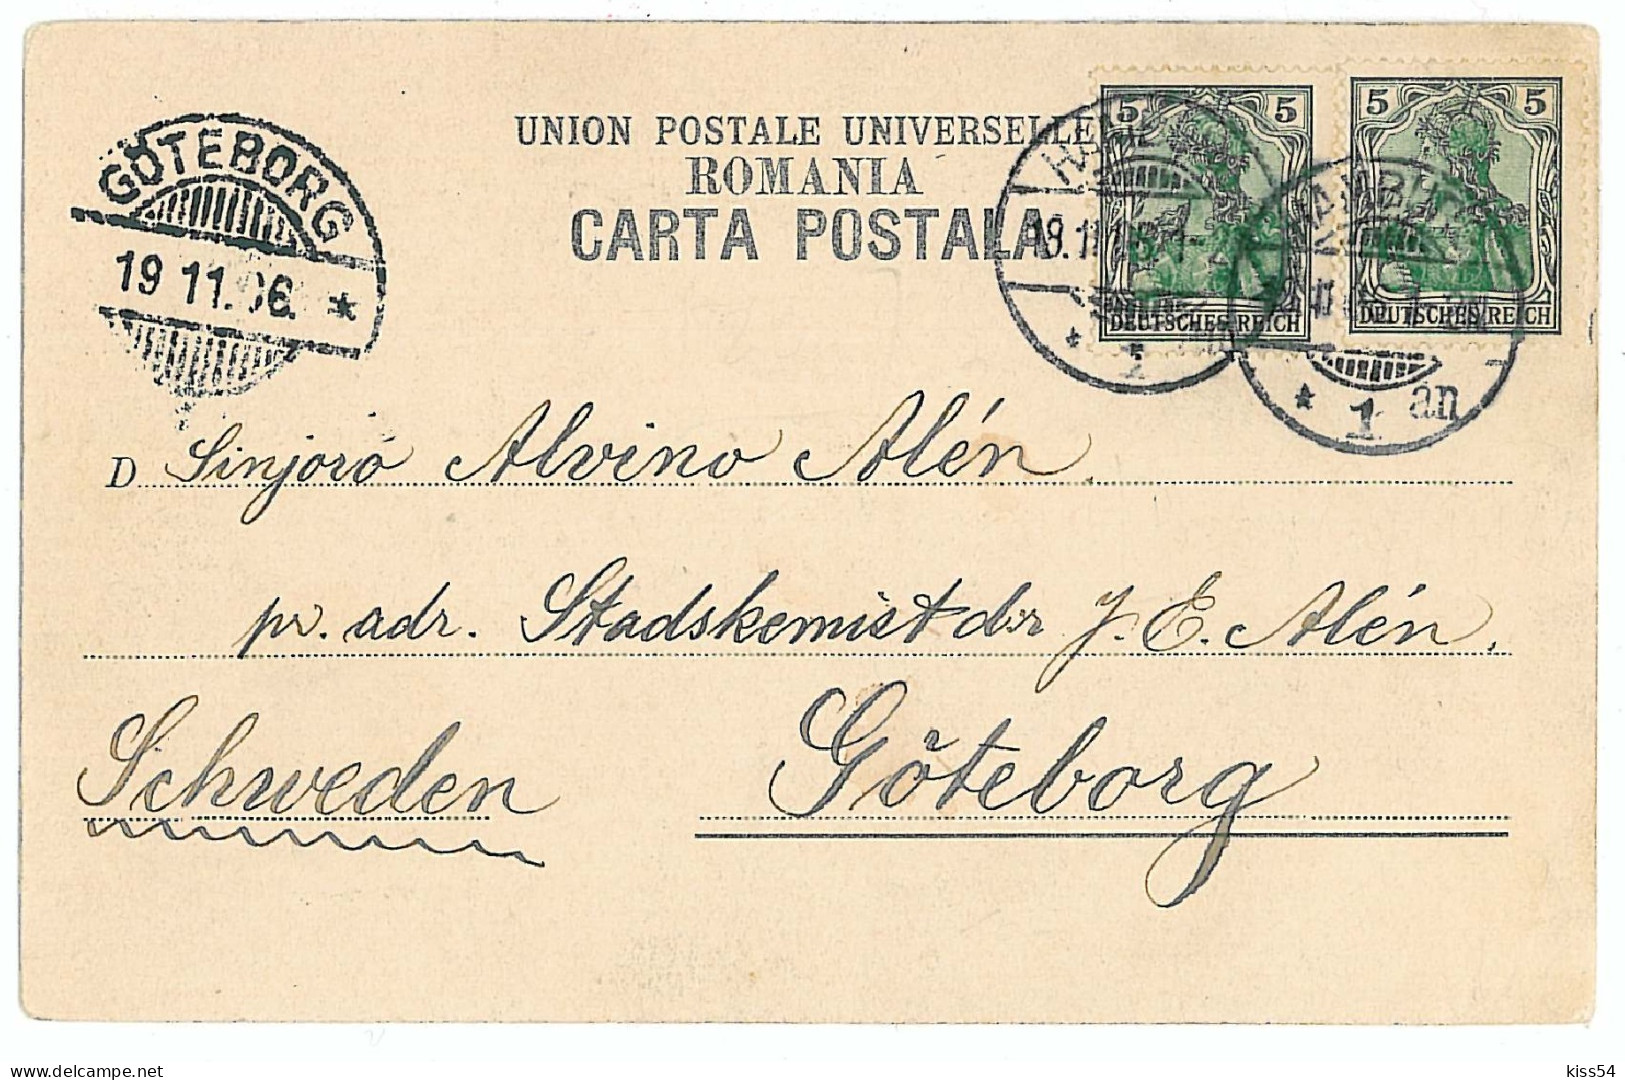 UNION POSTALE UNIVERSELLE
ROMANIA
CARTA POSTALA
GÖTEBORG
19 11. 06.
5 5
DEUTSCHES REICH
5 5
DEUTSCHES REICH
HAMBURG
1
an
D Sinjoro Alvino Alén
pr. adr. Stadskemist d:r J. E. Alén,
Schweden Göteborg
kiss54